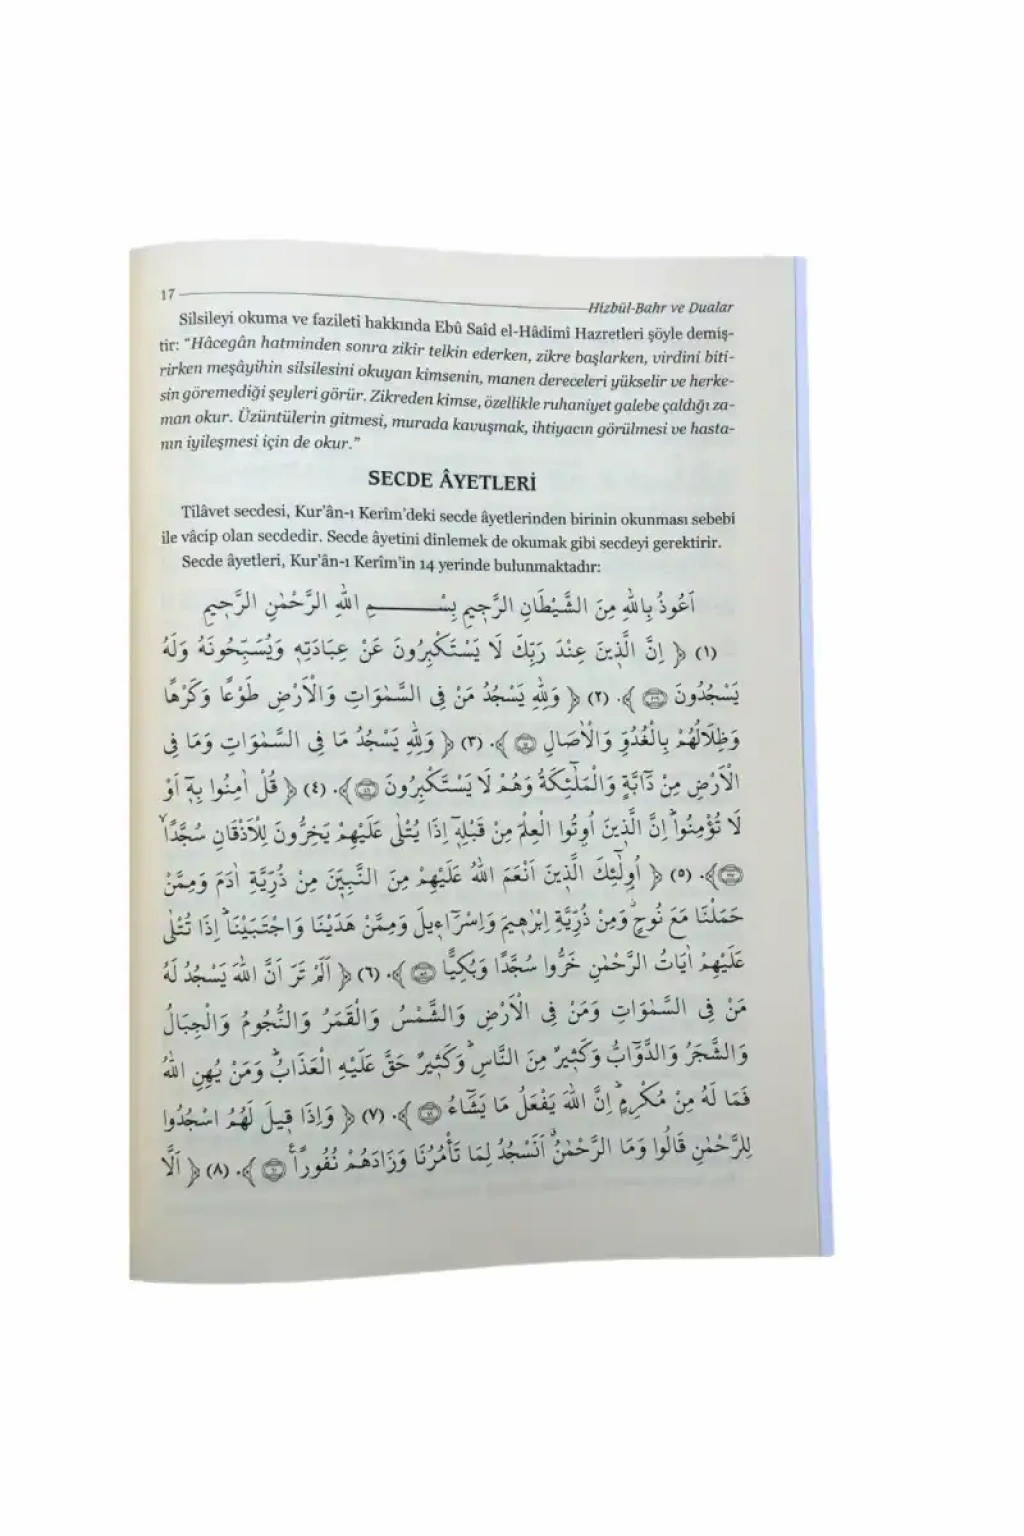 17 Hizbül-Bahr ve Dualar
Silsileyi okuma ve fazileti hakkında Ebû Saîd el-Hâdimî Hazretleri şöyle demiş-
tir: "Hâcegân hatminden sonra zikir telkin ederken, zikre başlarken, virdini biti-
rirken meşâyihin silsilesini okuyan kimsenin, manen dereceleri yükselir ve herke-
sin göremediği şeyleri görür. Zikreden kimse, özellikle ruhaniyet galebe çaldığı za-
man okur. Üzüntülerin gitmesi, murada kavuşmak, ihtiyacın görülmesi ve hasta-
nın iyileşmesi için de okur."
SECDE ÂYETLERİ
Tilâvet secdesi, Kur'ân-ı Kerîm'deki secde âyetlerinden birinin okunması sebebi
ile vâcip olan secdedir. Secde âyetini dinlemek de okumak gibi secdeyi gerektirir.
Secde âyetleri, Kur'ân-ı Kerîm'in 14 yerinde bulunmaktadır:
اَعُوذُ بِاللّٰهِ مِنَ الشَّيْطَانِ الرَّجِيمِ بِسْـــــمِ اللّٰهِ الرَّحْمٰنِ الرَّحِيمِ
(١) ﴿ اِنَّ الَّذِينَ عِنْدَ رَبِّكَ لَا يَسْتَكْبِرُونَ عَنْ عِبَادَتِهِ وَيُسَبِّحُونَهُ وَلَهُ
يَسْجُدُونَ ﴾. (٢) ﴿ وَلِلّٰهِ يَسْجُدُ مَنْ فِى السَّمٰوَاتِ وَالْاَرْضِ طَوْعًا وَكَرْهًا
وَظِلَالُهُمْ بِالْغُدُوِّ وَالْاٰصَالِ ﴾. (٣) ﴿ وَلِلّٰهِ يَسْجُدُ مَا فِى السَّمٰوَاتِ وَمَا فِى
الْاَرْضِ مِنْ دَٓابَّةٍ وَالْمَلٰٓئِكَةُ وَهُمْ لَا يَسْتَكْبِرُونَ ﴾. (٤) ﴿ قُلْ اٰمِنُوا بِهِٓ اَوْ
لَا تُؤْمِنُواۜ اِنَّ الَّذِينَ اُوتُوا الْعِلْمَ مِنْ قَبْلِهِٓ اِذَا يُتْلٰى عَلَيْهِمْ يَخِرُّونَ لِلْاَذْقَانِ سُجَّدًاۙ
﴾. (٥) ﴿ اُولٰٓئِكَ الَّذِينَ اَنْعَمَ اللّٰهُ عَلَيْهِمْ مِنَ النَّبِيِّنَ مِنْ ذُرِّيَّةِ اٰدَمَ وَمِمَّنْ
حَمَلْنَا مَعَ نُوحٍ وَمِنْ ذُرِّيَّةِ اِبْرٰهِيمَ وَاِسْرَٓاءِيلَ وَمِمَّنْ هَدَيْنَا وَاجْتَبَيْنَاۜ اِذَا تُتْلٰى
عَلَيْهِمْ اٰيَاتُ الرَّحْمٰنِ خَرُّوا سُجَّدًا وَبُكِيًّا ﴾. (٦) ﴿ اَلَمْ تَرَ اَنَّ اللّٰهَ يَسْجُدُ لَهُ
مَنْ فِى السَّمٰوَاتِ وَمَنْ فِى الْاَرْضِ وَالشَّمْسُ وَالْقَمَرُ وَالنُّجُومُ وَالْجِبَالُ
وَالشَّجَرُ وَالدَّوَٓابُّ وَكَثِيرٌ مِنَ النَّاسِۜ وَكَثِيرٌ حَقَّ عَلَيْهِ الْعَذَابُۜ وَمَنْ يُهِنِ اللّٰهُ
فَمَا لَهُ مِنْ مُكْرِمٍۜ اِنَّ اللّٰهَ يَفْعَلُ مَا يَشَٓاءُ ﴾. (٧) ﴿ وَاِذَا قِيلَ لَهُمُ اسْجُدُوا
لِلرَّحْمٰنِ قَالُوا وَمَا الرَّحْمٰنُۗ اَنَسْجُدُ لِمَا تَأْمُرُنَا وَزَادَهُمْ نُفُورًاۜ ﴾. (٨) ﴿ اَلَّا